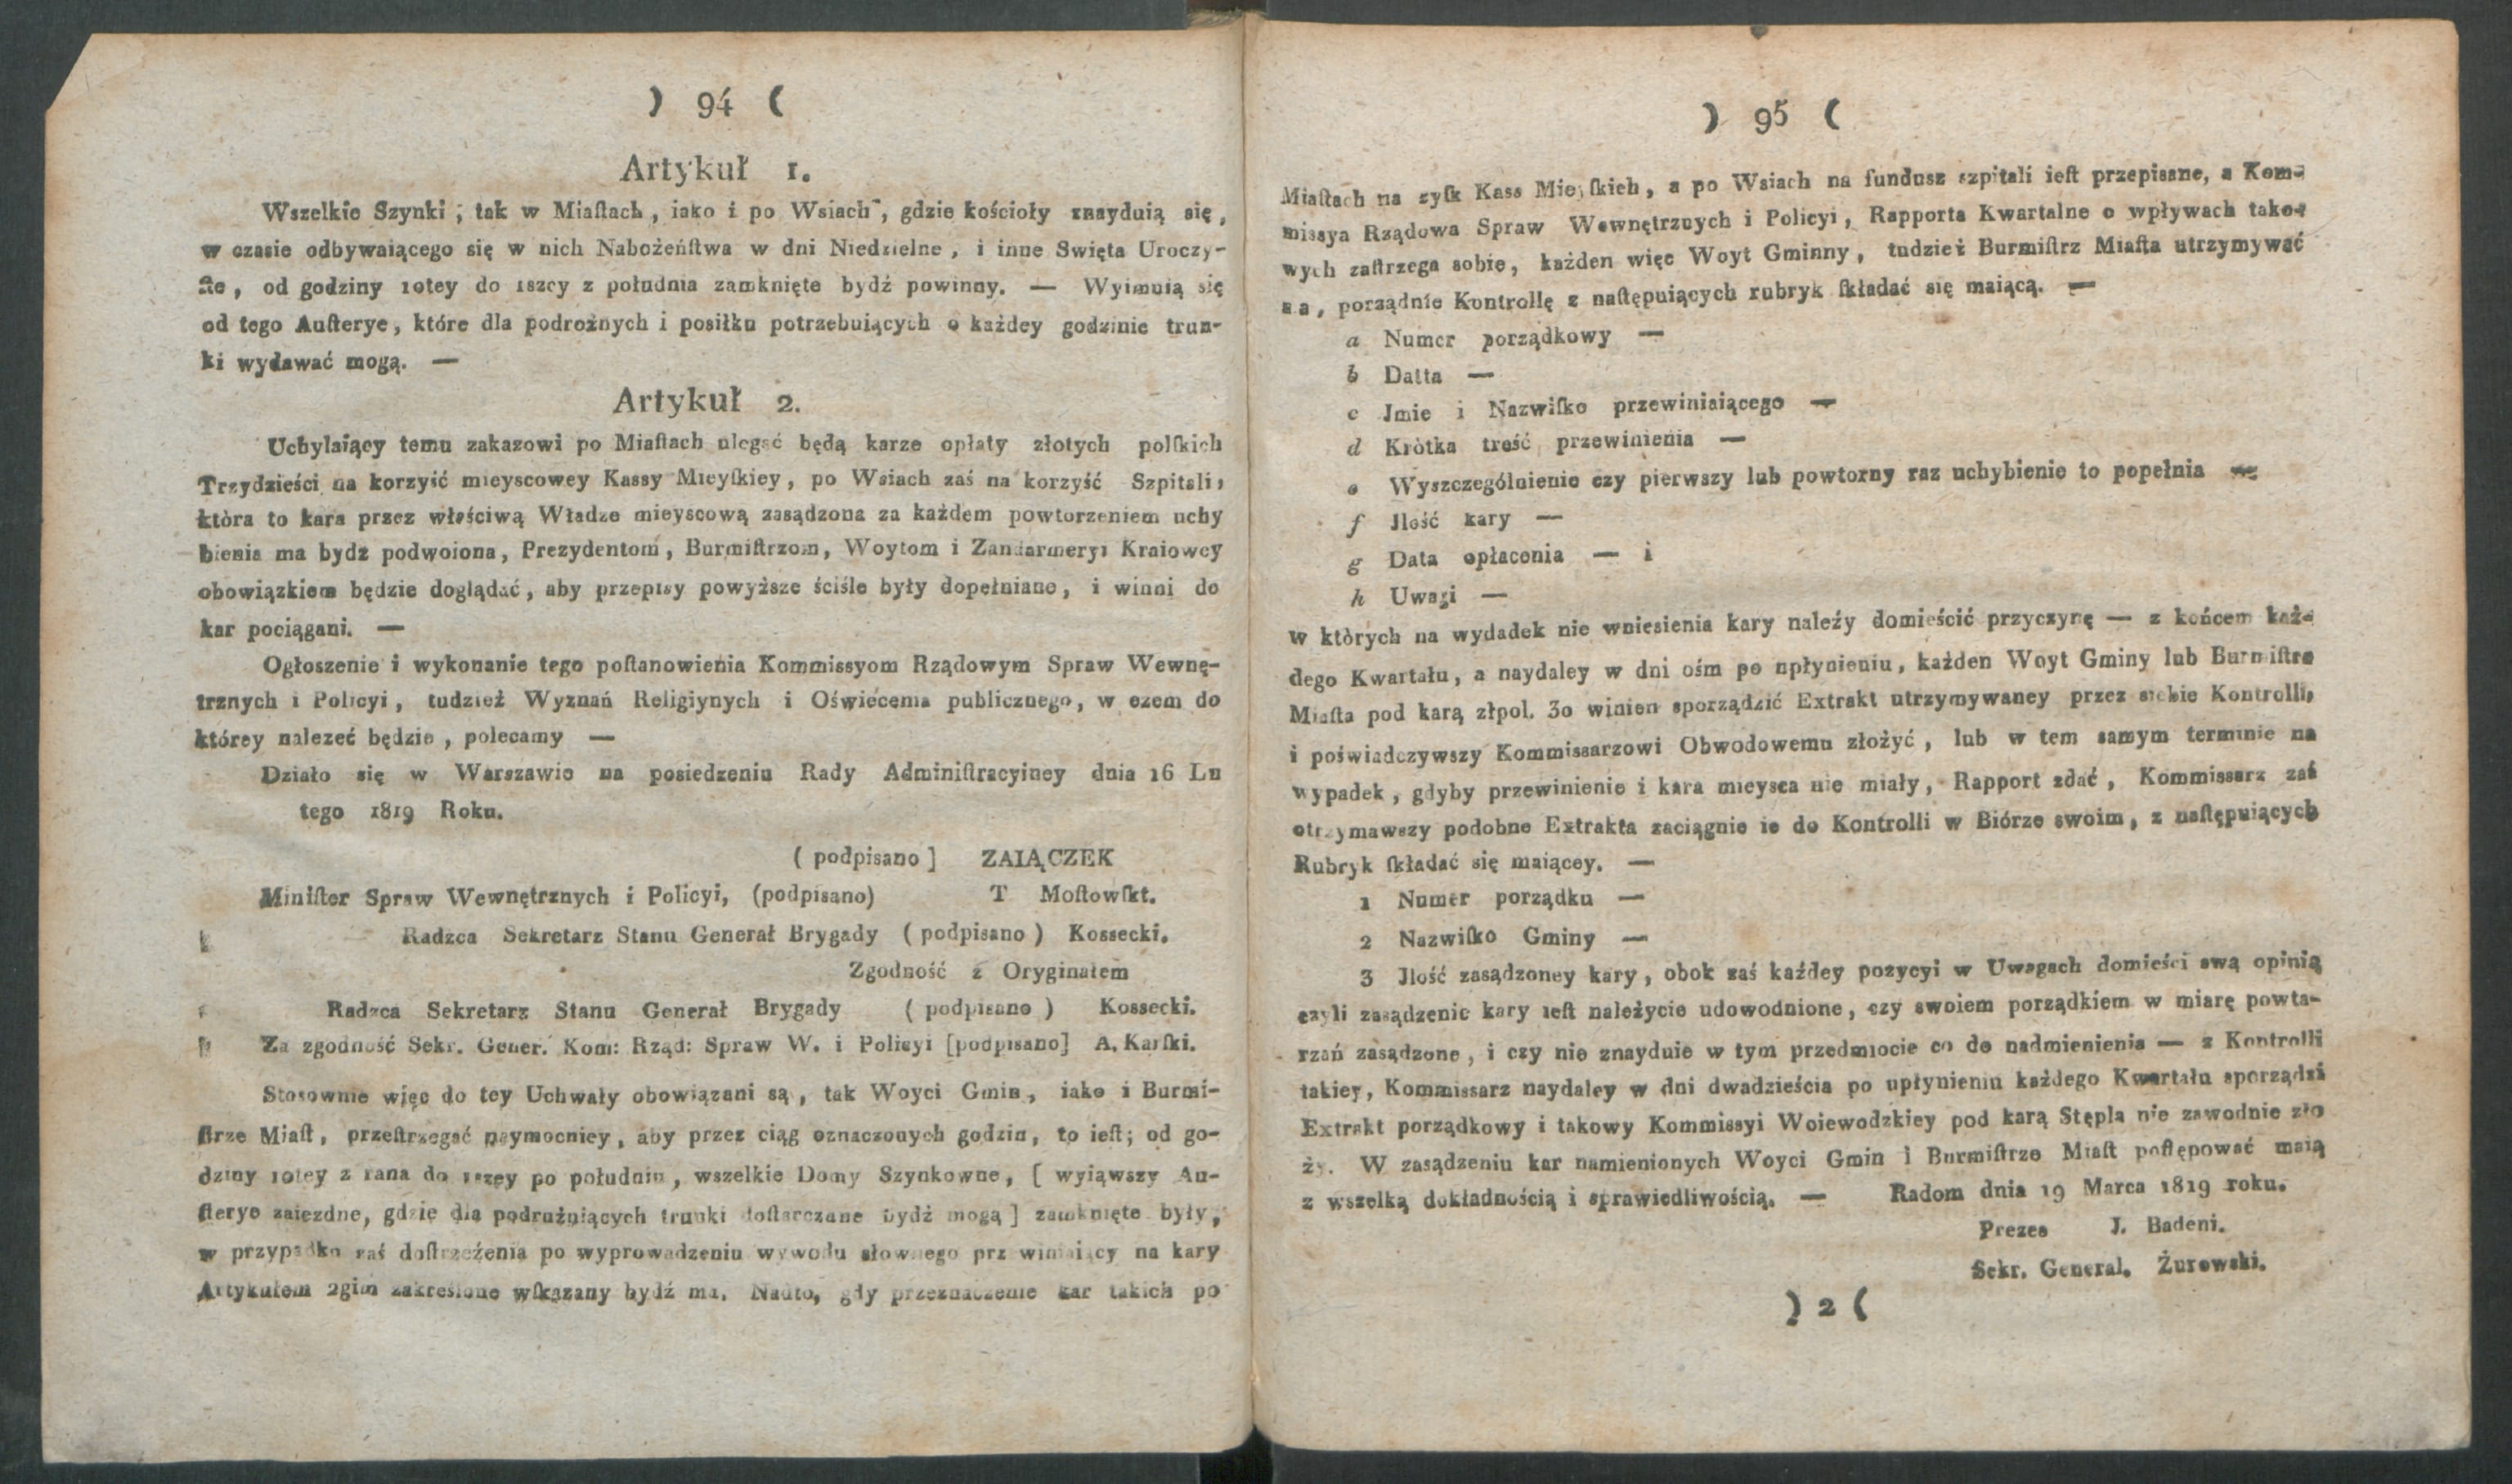 ) 94 (
Artykuł 1.
Wszelkie Szynki, tak w Miaſtach, iako i po Wsiach, gdzie kościoły znayduią się,
w czasie odbywaiącego się w nich Nabożeńſtwa w dni Niedzielne, i inne Swięta Uroczy-
ſte, od godziny 10tey do 1szey z południa zamknięte bydź powinny. — Wyimuią się
od tego Auſterye, które dla podrożnych i posiłku potrzebuiących o każdey godzinie trun-
ki wydawać mogą. —
Artykuł 2.
Uchylaiący temu zakazowi po Miaſtach ulegać będą karze opłaty złotych polſkich
Trzydzieści na korzyść mieyscowey Kassy Mieyſkiey, po Wsiach zaś na korzyść Szpitali,
ktòra to kara przez właściwą Władze mieyscową zasądzona za każdem powtorzeniem uchy
bienia ma bydź podwoiona, Prezydentom, Burmiſtrzom, Woytom i Zandarmeryi Kraiowey
obowiązkiem będzie doglądać, aby przepisy powyższe ściśle były dopełniane, i winni do
kar pociągani. —
Ogłoszenie i wykonanie tego poſtanowienia Kommissyom Rządowym Spraw Wewnę-
trznych i Policyi, tudzież Wyznań Religiynych i Oświecenia publicznego, w czem do
którey nalezeć będzie, polecamy —
Działo się w Warszawie na posiedzeniu Rady Adminiſtracyiney dnia 16 Lu
tego 1819 Roku.
( podpisano ] ZAIĄCZEK
Miniſter Spraw Wewnętrznych i Policyi, (podpisano) T Moſtowſkt.
Radzca Sekretarz Stanu Generał Brygady ( podpisano ) Kossecki.
Zgodność z Oryginałem
Radzca Sekretarz Stanu Generał Brygady ( podpisano ) Kossecki.
Za zgodność Sekr. Gener. Kom: Rząd: Spraw W. i Policyi [podpisano] A. Karſki.
Stosownie więc do tey Uchwały obowiązani są, tak Woyci Gmin, iako i Burmi-
ſtrze Miaſt, przeſtrzegać naymocniey, aby przez ciąg oznaczonych godzin, to ieſt; od go-
dziny 10tey z rana do 1szey po południu, wszelkie Domy Szynkowne, [ wyiąwszy Au-
ſterye zaiezdne, gdzie dla podrużuiących trunki doſtarczane bydź mogą ] zamknięte były,
w przypadku zaś doſtrzeżenia po wyprowadzeniu wywodu słownego prz winiaiący na kary
Artykułem 2gim zakreslone wſkazany bydź ma. Nadto, gdy przeznaczenie kar takich po
) 95 (
Miaſtach na zyſk Kass Mieyſkich, a po Wsiach na fundusz szpitali ieſt przepisane, a Kom-
missya Rządowa Spraw Wewnętrznych i Policyi, Rapporta Kwartalne o wpływach tako-
wych zaſtrzega sobie, każden więc Woyt Gminny, tudzież Burmiſtrz Miaſta utrzymywać
ma, porządnie Kontrollę z naſtępuiących rubryk ſkładać się maiącą. —
a Numer porządkowy —
b Datta —
c Jmie i Nazwiſko przewiniaiącego —
d Kròtka treść przewinienia —
e Wyszczególnienie czy pierwszy lub powtorny raz uchybienie to popełnia —
f Jlość kary —
g Data opłacenia — i
h Uwagi —
w ktòrych na wydadek nie wniesienia kary należy domieścić przyczynę — z końcem każ-
dego Kwartału, a naydaley w dni ośm po upłynieniu, każden Woyt Gminy lub Burmiſtrz
Miaſta pod karą złpol. 30 winien sporządzić Extrakt utrzymywaney przez siebie Kontrolli,
i poświadczywszy Kommissarzowi Obwodowemu złożyć, lub w tem samym terminie na
wypadek, gdyby przewinienie i kara mieysca nie miały, Rapport zdać, Kommissarz zaś
otrzymawszy podobne Extrakta zaciągnie ie do Kontrolli w Biórze swoim, z naſtępuiących
Rubryk ſkładać się maiącey. —
1 Numer porządku —
2 Nazwiſko Gminy —
3 Jlość zasądzoney kary, obok zaś każdey pozycyi w Uwagach domieści swą opinią
czyli zasądzenie kary ieſt należycie udowodnione, czy swoiem porządkiem w miarę powta-
rzań zasądzone, i czy nie znayduie w tym przedmiocie co do nadmienienia — z Kontrolli
takiey, Kommissarz naydaley w dni dwadzieścia po upłynieniu każdego Kwartału sporządzi
Extrakt porządkowy i takowy Kommissyi Woiewodzkiey pod karą Stępla nie zawodnie zło
ży. W zasądzeniu kar namienionych Woyci Gmin i Burmiſtrze Miaſt poſtępować maią
z wszelką dokładnością i sprawiedliwością. — Radom dnia 19 Marca 1819 roku.
Prezes J. Badeni.
Sekr. General. Żurowski.
) 2 (